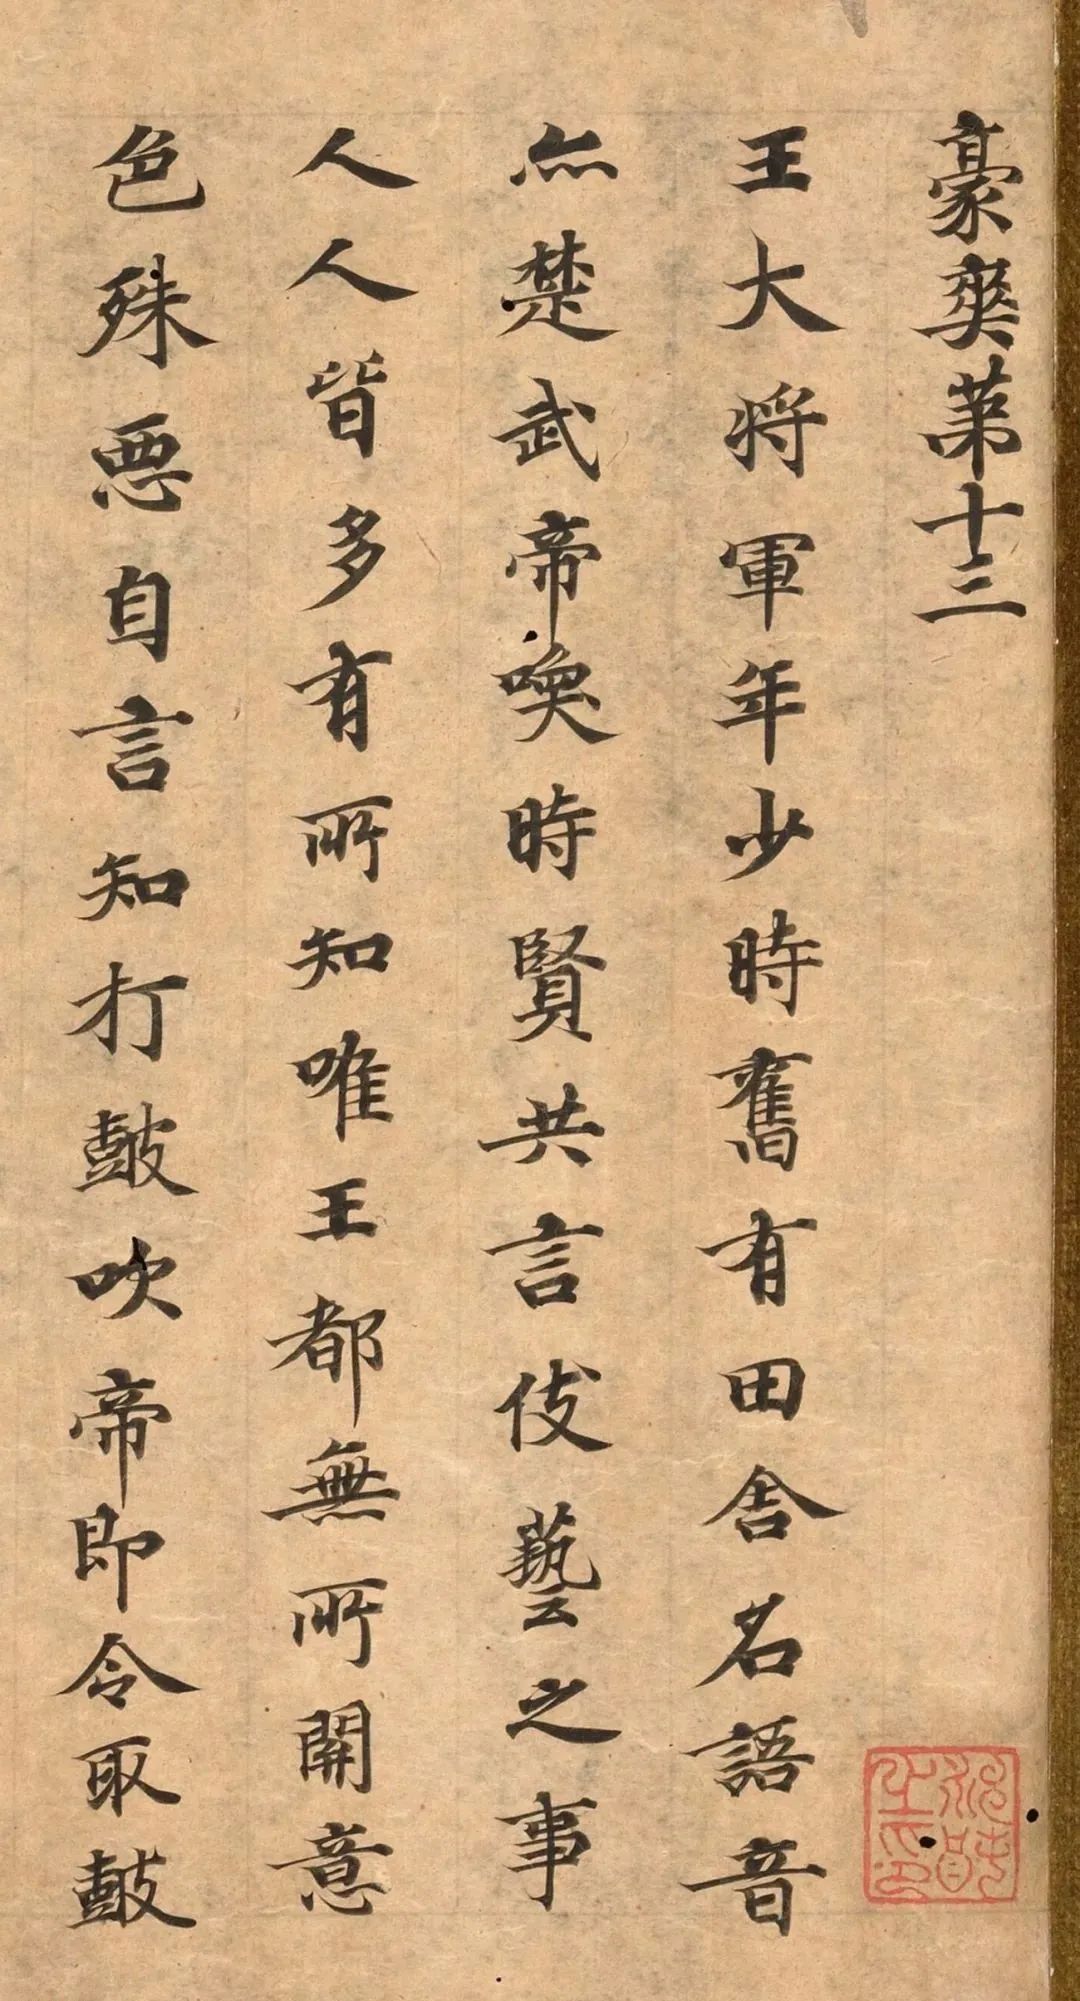 豪爽第十三
王大将軍年少時舊有田舎名語音
亦楚武帝喚時賢共言伎藝之事
人人皆多有所知唯王都無所開意
色殊惡自言知打鼓吹帝即令取鼓